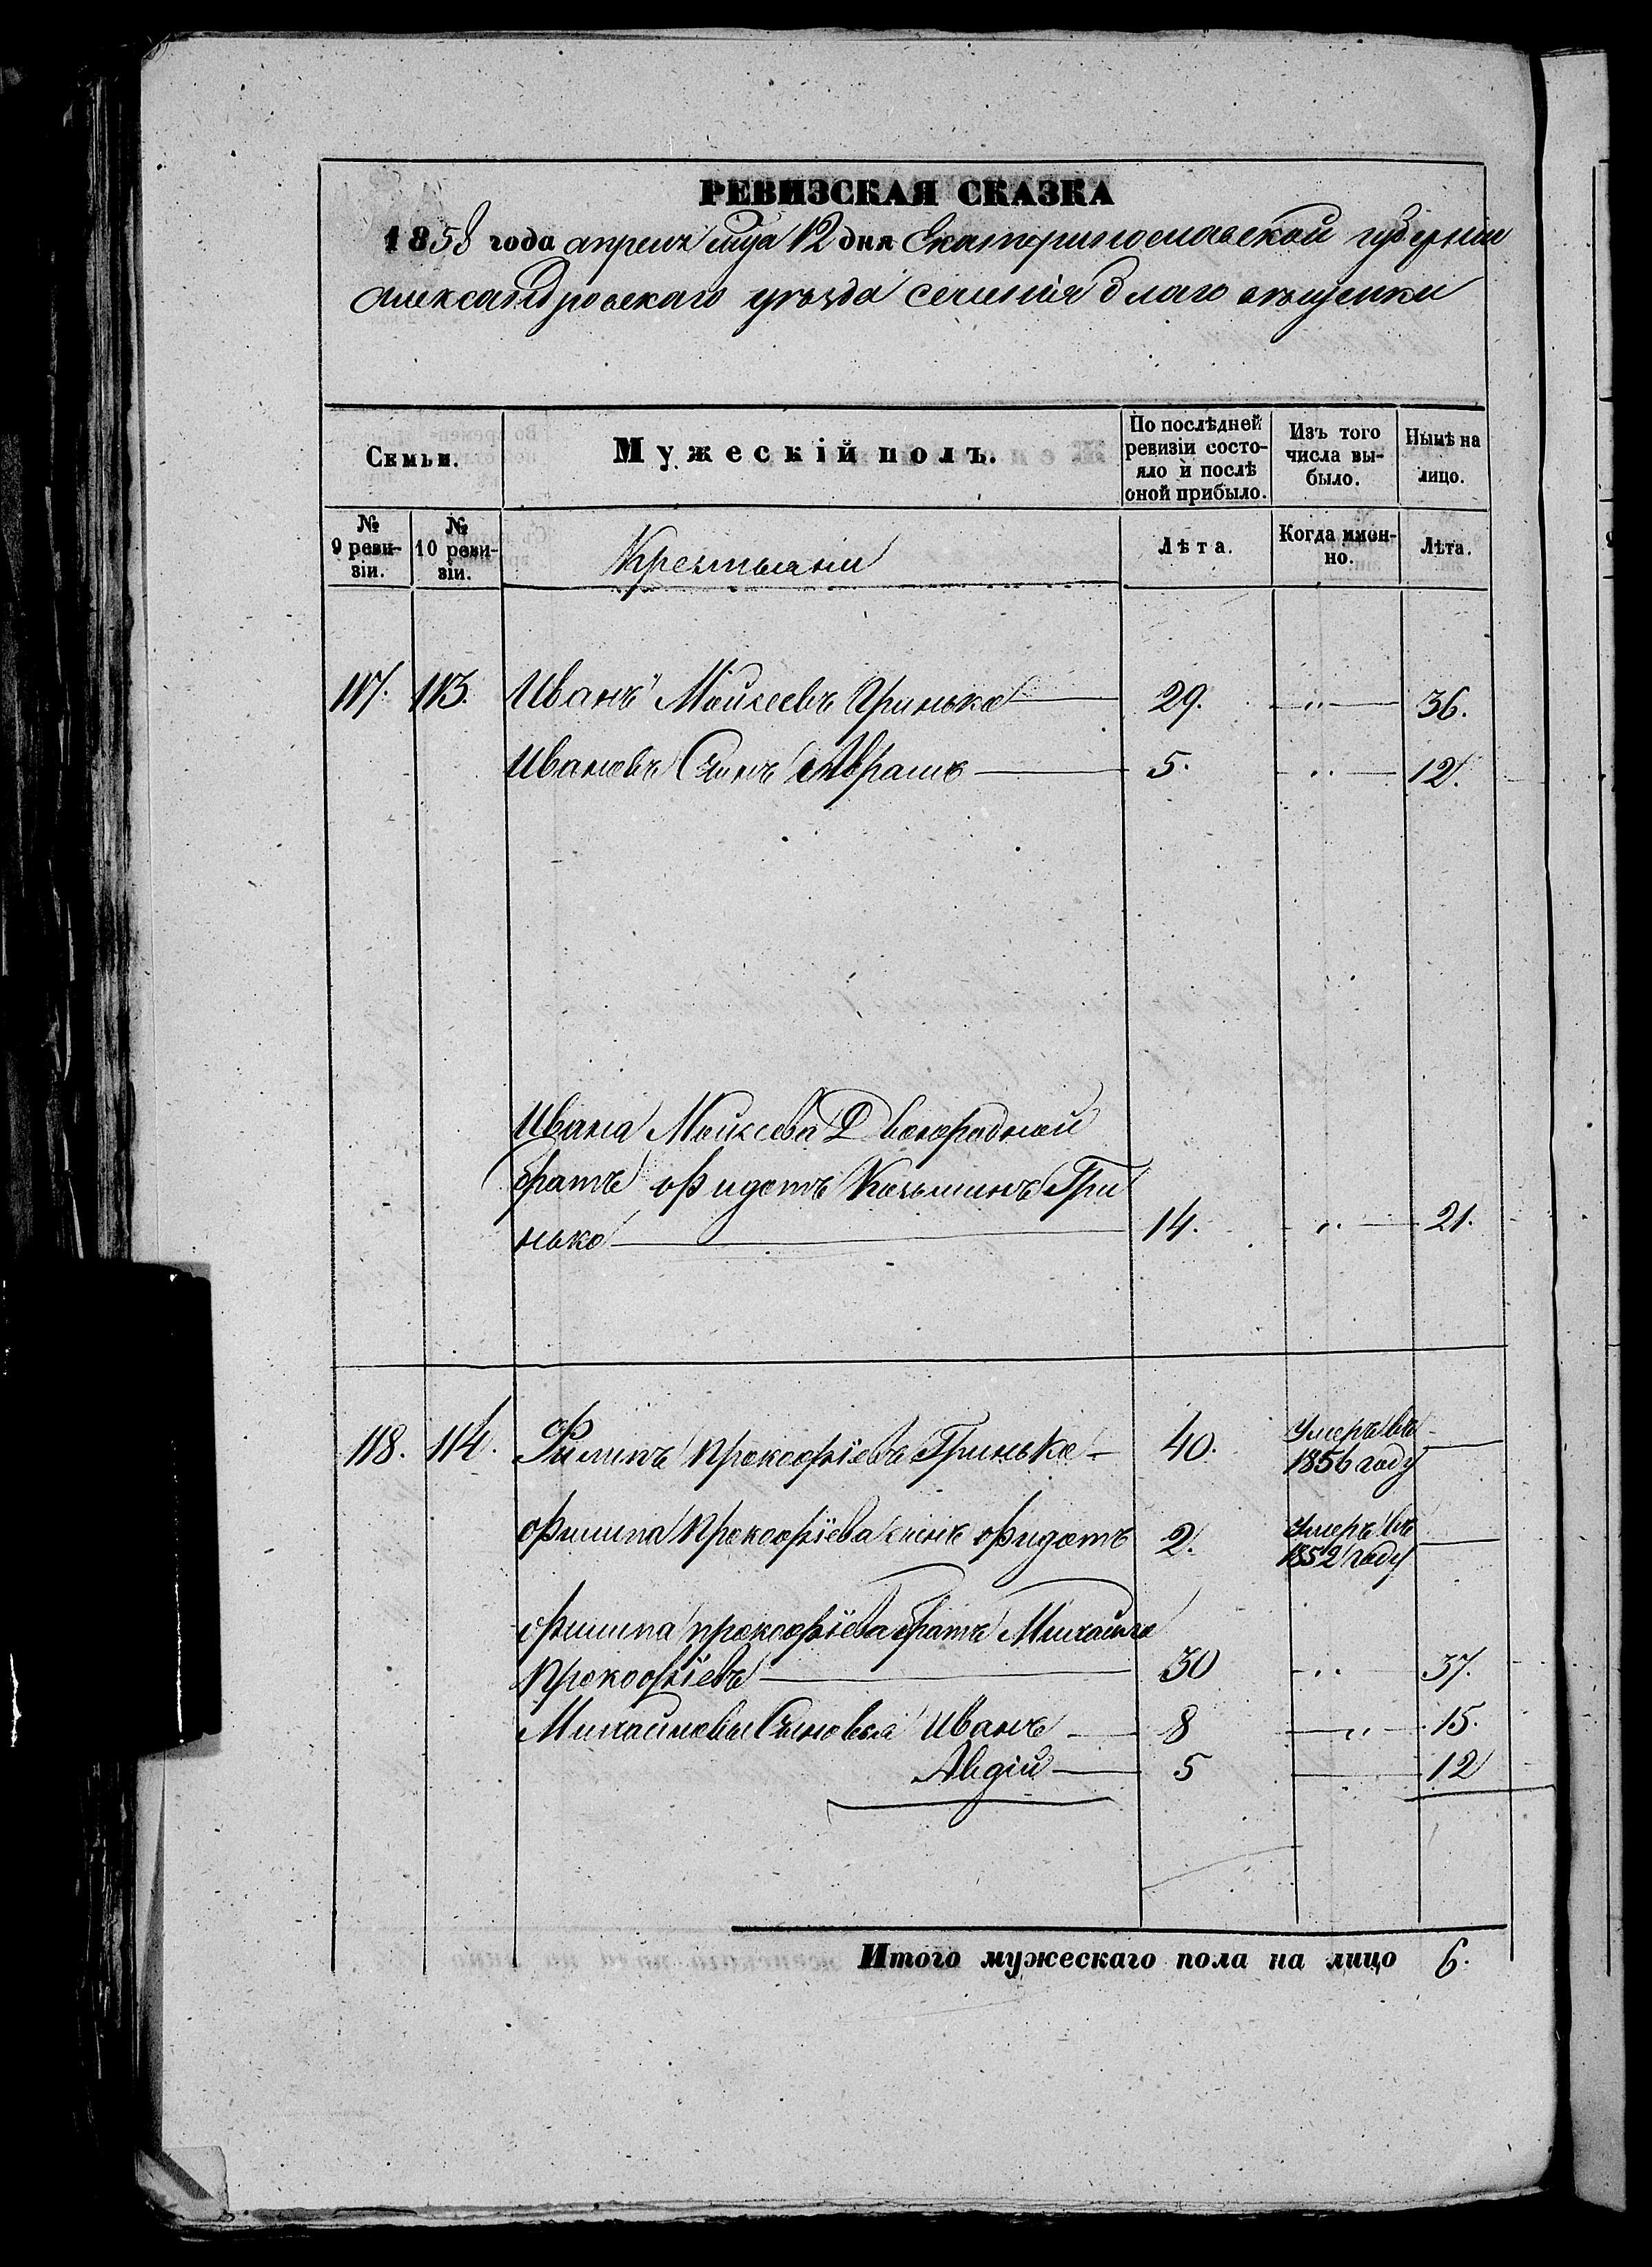 РЕВИЗСКАЯ СКАЗКА
1858 года апреля мца 12 дня Екатеринославской губерніи
Александровскаго уезда селенія Благовещенки
Семьи.
Мужескій полъ.
По послѣдней ревизіи состояло и послѣ оной прибыло.
Изъ того числа выбыло.
Нынѣ на лицо.
№ 9 ревизіи.
№ 10 ревизіи.
Крестьяніи
Лѣта.
Когда именно.
Лѣта.
117. 113. Иванъ Мойсеевъ Гринько 29. " 36.
Ивановъ Сынъ Аврамъ 5. " 12.
Ивана Мойсева Двоюродной
братъ Фидотъ Козьминъ Гри
нько 14. " 21.
118. 114. Филипъ Прокофіевъ Гринько 40. Умеръ въ 1856 году
Филипа Прокофіева сынъ Фидотъ 2. Умеръ въ 1852 году
Филипа прокофіева братъ Михайло
Прокофіевъ 30 " 37.
Михайловы Сыновья Иванъ 8 " 15.
Авдій 5 12
Итого мужескаго пола на лицо 6.